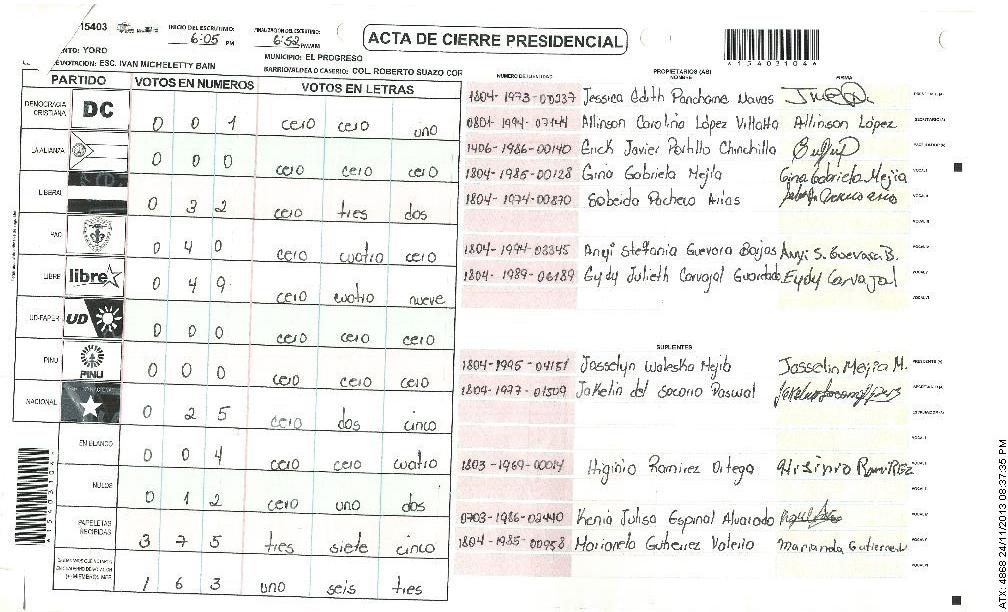 15403
INICIO DEL ESCRUTINIO: 6:05 PM
FINALIZACION DEL ESCRUTINIO: 6:52 PM/AM
ACTA DE CIERRE PRESIDENCIAL
A15403104A
YORO
MUNICIPIO: EL PROGRESO
VOTACION: ESC. IVAN MICHELETTY BAIN
BARRIO/ALDEA O CASERIO: COL. ROBERTO SUAZO COR
PARTIDO VOTOS EN NUMEROS VOTOS EN LETRAS
DEMOCRACIA CRISTIANA DC 0 0 1 cero cero uno
LA ALIANZA 0 0 0 cero cero cero
LIBERAL 0 3 2 cero tres dos
PAC 0 4 0 cero cuatro cero
LIBRE libre 0 4 9 cero cuatro nueve
UD-FAPER UD 0 0 0 cero cero cero
PINU PINU 0 0 0 cero cero cero
NACIONAL 0 2 5 cero dos cinco
EN BLANCO 0 0 4 cero cero cuatro
NULOS 0 1 2 cero uno dos
PAPELETAS RECIBIDAS 3 7 5 tres siete cinco
1 6 3 uno seis tres
NUMERO DE IDENTIDAD PROPIETARIOS (AS) NOMBRE FIRMA
1804-1973-00237 Jessica Edith Panchame Navas
0801-1994-07144 Allinson Carolina López Villalta Allinson López
1406-1986-00140 Erick Javier Portillo Chinchilla
1804-1985-00128 Gina Gabriela Mejia Gina Gabriela Mejia
1804-1974-00870 Sobeida Pacheco Arias
1804-1994-02345 Anyi Stefania Guevara Barjas Anyi S. Guevara B.
1804-1989-06189 Eydy Julieth Carvajal Guardado Eydy Carvajal
SUPLENTES
1804-1995-04151 Josselyn Waleska Mejia Josselin Mejia M.
1804-1977-01509 Jakelin del Socorro Pascual
1803-1969-00014 Higinio Ramirez Ortega Higinio RamiREZ
0703-1986-02440 Kenia Julisa Espinal Alvarado
1804-1985-00958 Marianela Gutierrez Valerio
A15403104A
ATX: 4868 24/11/2013 08:37:35 PM